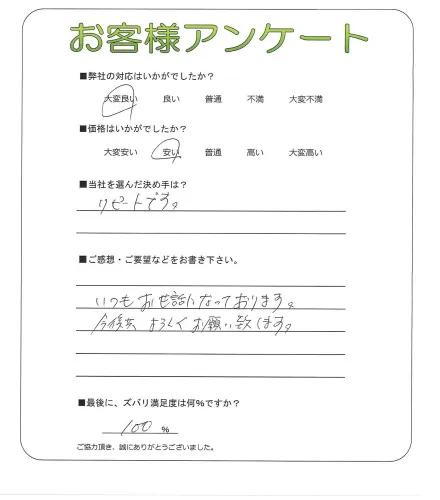 お客様アンケート
■弊社の対応はいかがでしたか？
大変良い 良い 普通 不満 大変不満
■価格はいかがでしたか？
大変安い 安い 普通 高い 大変高い
■当社を選んだ決め手は？
リピートです。
■ご感想・ご要望などをお書き下さい。
いつもお世話になっております。
今後共 よろしくお願い致します。
■最後に、ズバリ満足度は何%ですか？
100 %
ご協力頂き、誠にありがとうございました。